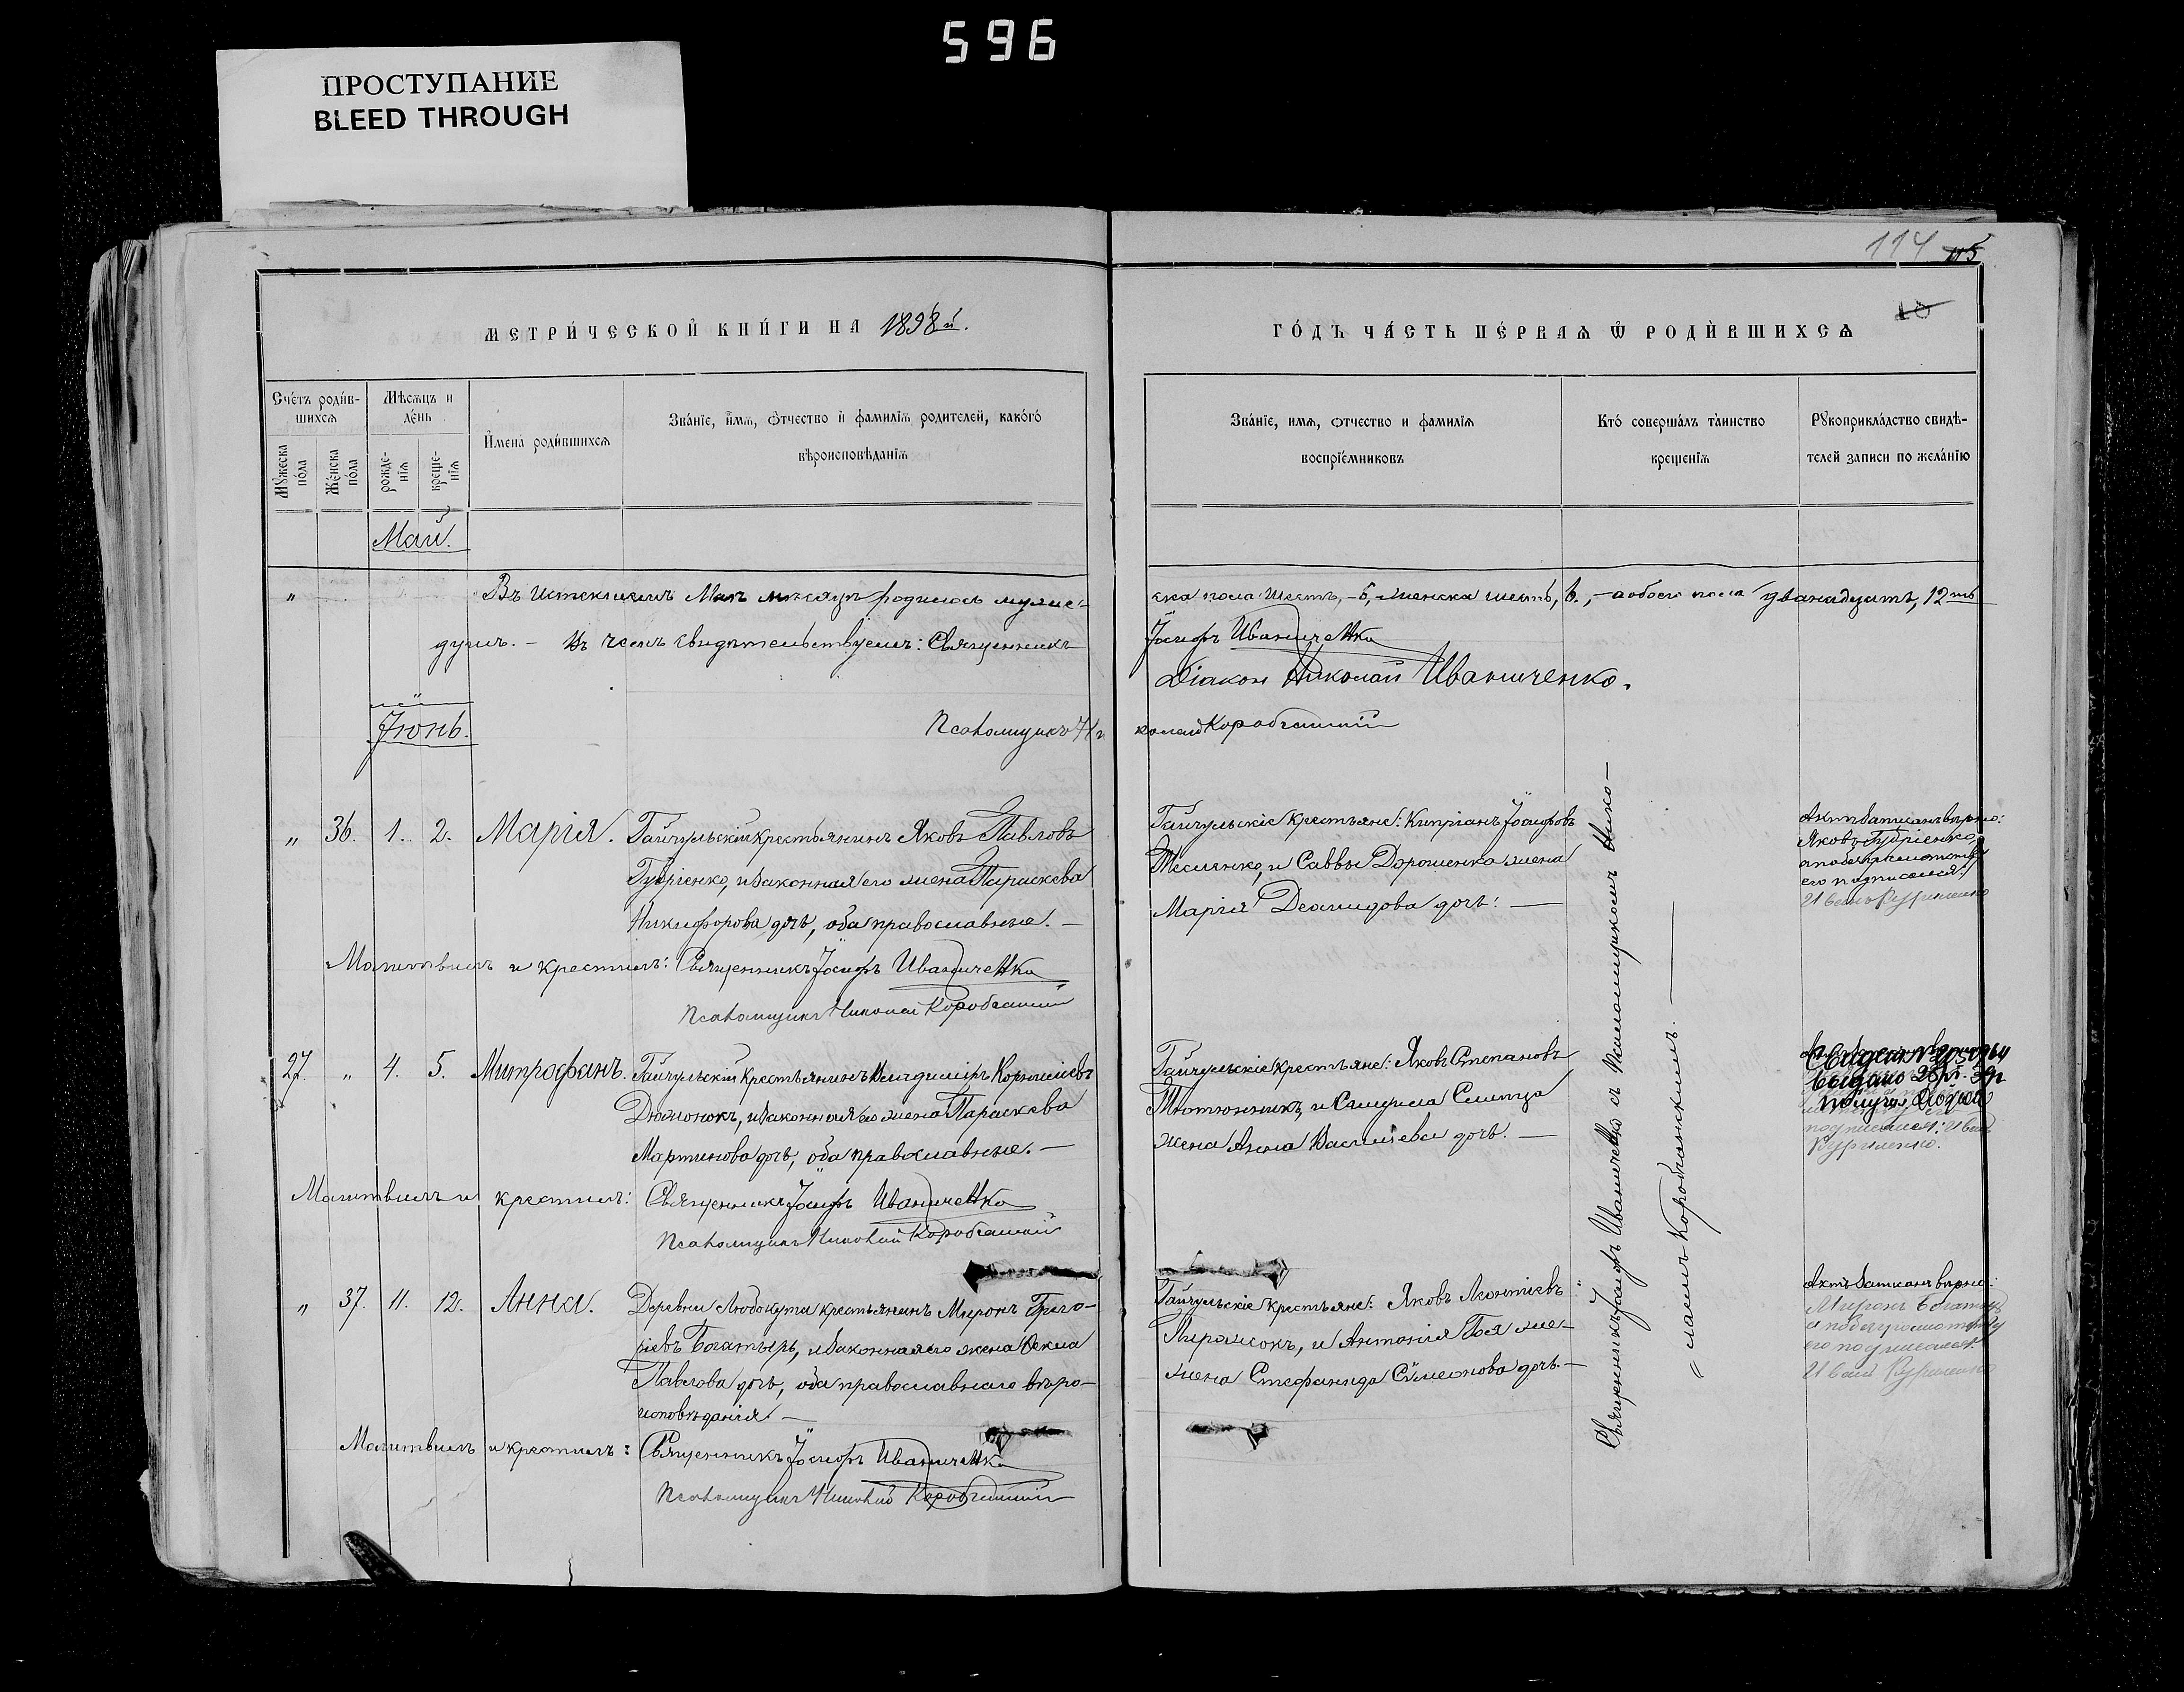 596
ПРОСТУПАНИЕ
BLEED THROUGH
114 115
10
МЕТРИ́ЧЕСКОЙ КНИ́ГИ НА 1898й.
ГО́ДЪ ЧА́СТЬ ПЕ́РВАѦ Ѿ РОДИ́ВШИХСѦ
Сче́тъ роди́в-
шихсѧ
Мꙋ́жеска
по́ла
Же́нска
по́ла
Мѣ́сѧцъ и
де́нь
рожде-
нїѧ
креще-
нїѧ
И҆мена̀ роди́вшихсѧ
Зва́нїе, и҆́мѧ, ѻ҆́тчество и҆ фамилїѧ родителей, како́гѡ
вѣроисповѣ́данїѧ
Зва́нїе, имѧ, ѻтчество и фамилїѧ
воспрїе́мниковъ
Кто̀ соверша́лъ та̀инство
креще́нїѧ
Рꙋкоприкла́дство свидѣ́-
телей записи по жела́нїю
Май.
" Въ истекшемъ Маѣ мѣсяцѣ родилось муже-
ска пола шесть, – 6, женска шесть, 6., – а обоего пола двѣнадцать, 12ть
душъ. – Въ чемъ свидѣтельствуемъ: Священникъ
Іосифъ Иваниченко
Діаконъ Николай Иваниченко.
Іюнь.
Псаломщикъ Ни
колай Коробчанскій
" 36. 1. 2. Марія. Гайчульскій крестьянинъ Яковъ Павловъ
Губріенко, и законная его жена Параскева
Никифорова дочь, оба православные. –
Молитвилъ и крестилъ: Священникъ Іосифъ Иваниченко
Псаломщикъ Николай Коробчанскій
Гайчульскіе крестьяне: Кипріанъ Іосифовъ
Тесленко, и Саввы Дорошенка жена
Марія Демидова дочь: –
Актъ записанъ вѣрно:
Яковъ Губріенко,
а по безграмотству
его подписался:
Иванъ Куриленко
27. " 4. 5. Митрофанъ. Гайчульскій крестьянинъ Владиміръ Корниліевъ
Дюмонокъ, и законная его жена Параскева
Мартинова дочь, оба православные. –
Молитвилъ и крестилъ: Священникъ Іосифъ Иваниченко
Псаломщикъ Николай Коробчанскій
Гайчульскіе крестьяне: Яковъ Степановъ
Тютюнникъ, и Самуила
жена Анна Василіева дочь. –
выдано
подписался: Иван
Куриленко.
" 37. 11. 12. Анна. Деревни Любокута крестьянинъ Миронъ Григо-
ріевъ Богатырь, и законная его жена Ѳекла
Павлова дочь, оба православнаго вѣро-
исповѣданія. –
Молитвилъ и крестилъ: Священникъ Іосифъ Иваниченко
Псаломщикъ Николай Коробчанскій
Гайчульскіе крестьяне: Яковъ Леонтіевъ
Пирожокъ, и Антонія Гоя же-
жена Стефанида Сѵмеонова дочь. –
Актъ записанъ вѣрно:
Миронъ Богатырь
а по безграмотству
его подписался:
Иван Куриленко
Священникъ Іосифъ Иваниченко съ псаломщикомъ Нико-
лаемъ Коробчанскимъ.